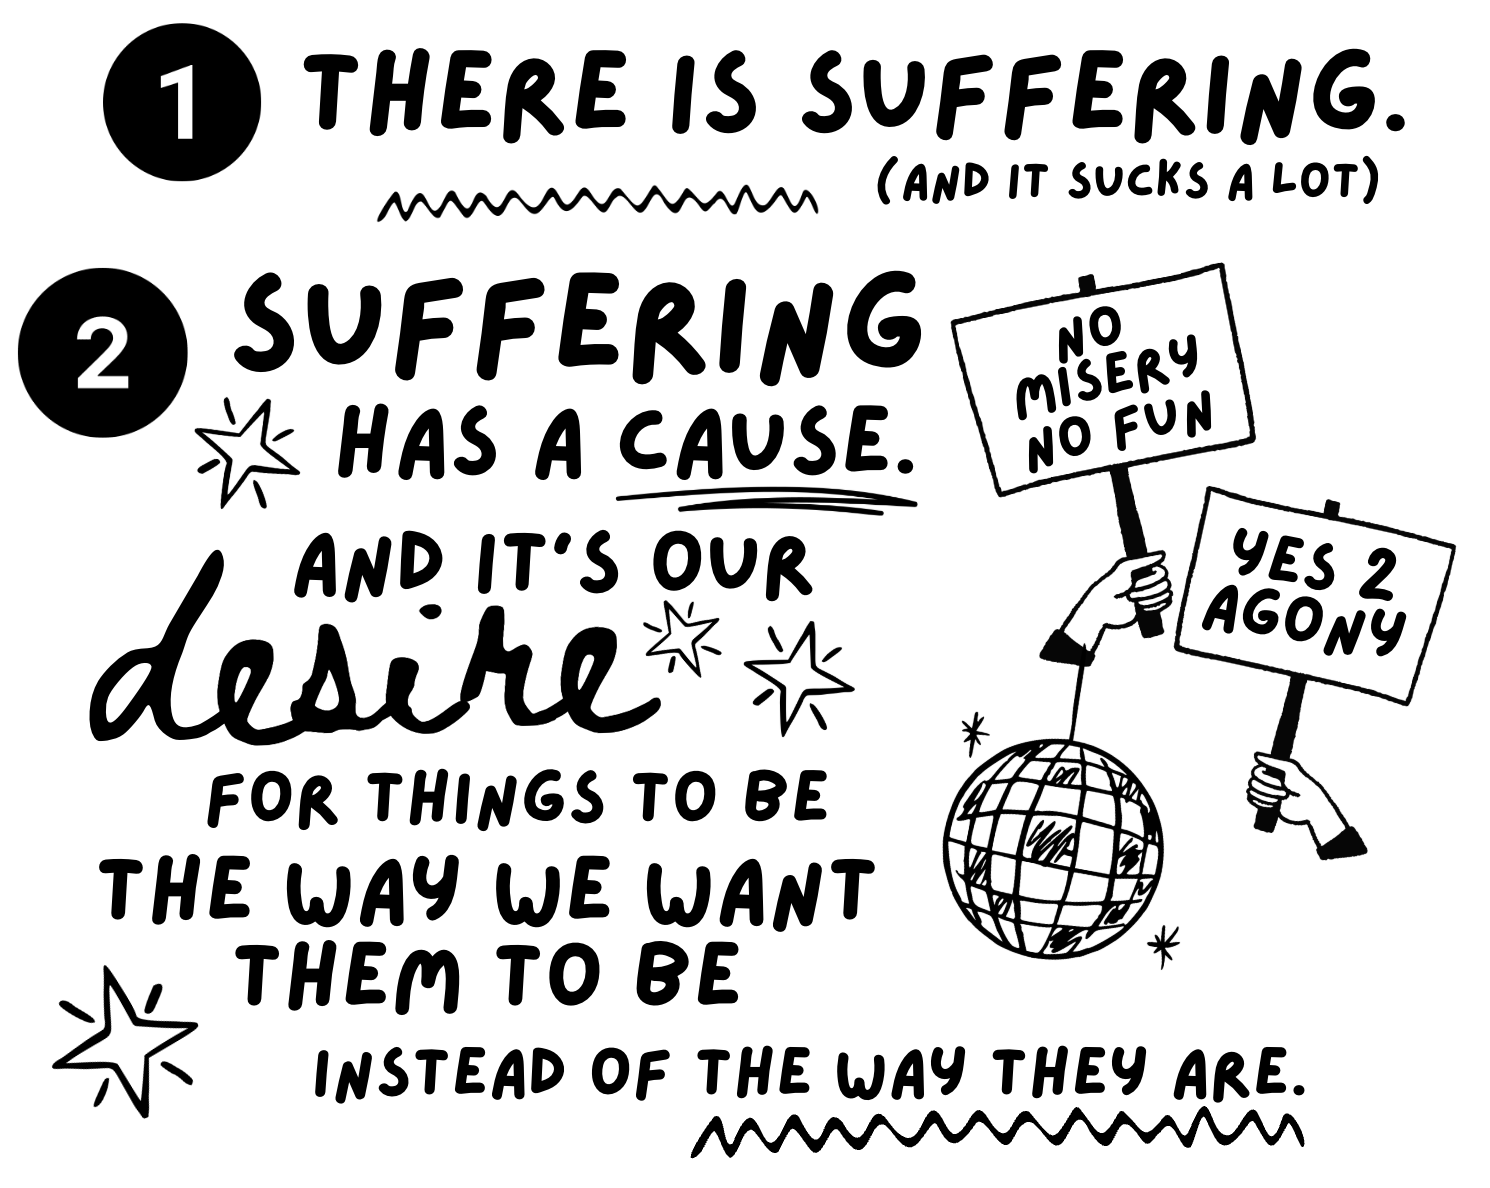 1 THERE IS SUFFERING.
(AND IT SUCKS A LOT)
2 SUFFERING
HAS A CAUSE.
AND IT'S OUR
desire
FOR THINGS TO BE
THE WAY WE WANT
THEM TO BE
INSTEAD OF THE WAY THEY ARE.
NO
MISERY
NO FUN
YES 2
AGONY